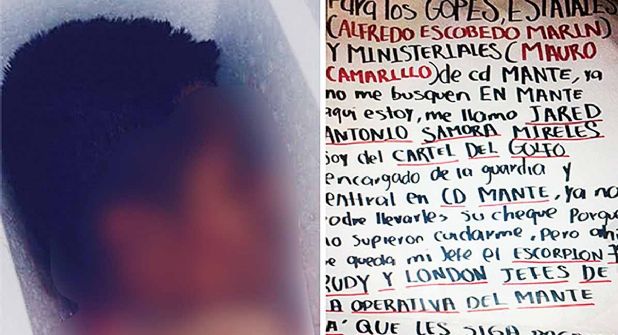 Para los GOPES, ESTATALES
(ALFREDO ESCOBEDO MARIN)
Y MINISTERIALES (MAURO
CAMARILLO) de cd MANTE, ya
no me busquen EN MANTE
aqui estoy, me llamo JARED
ANTONIO SAMORA MIRELES
soy del CARTEL DEL GOLFO
encargado de la guardia y
central en CD MANTE, ya no
podre llevarles su cheque Porque
no supieron cuidarme, Pero ahi
se queda mi Jefe el ESCORPION
RUDY Y LONDON JEFES DE
LA OPERATIVA DEL MANTE
QUE LES SIGA